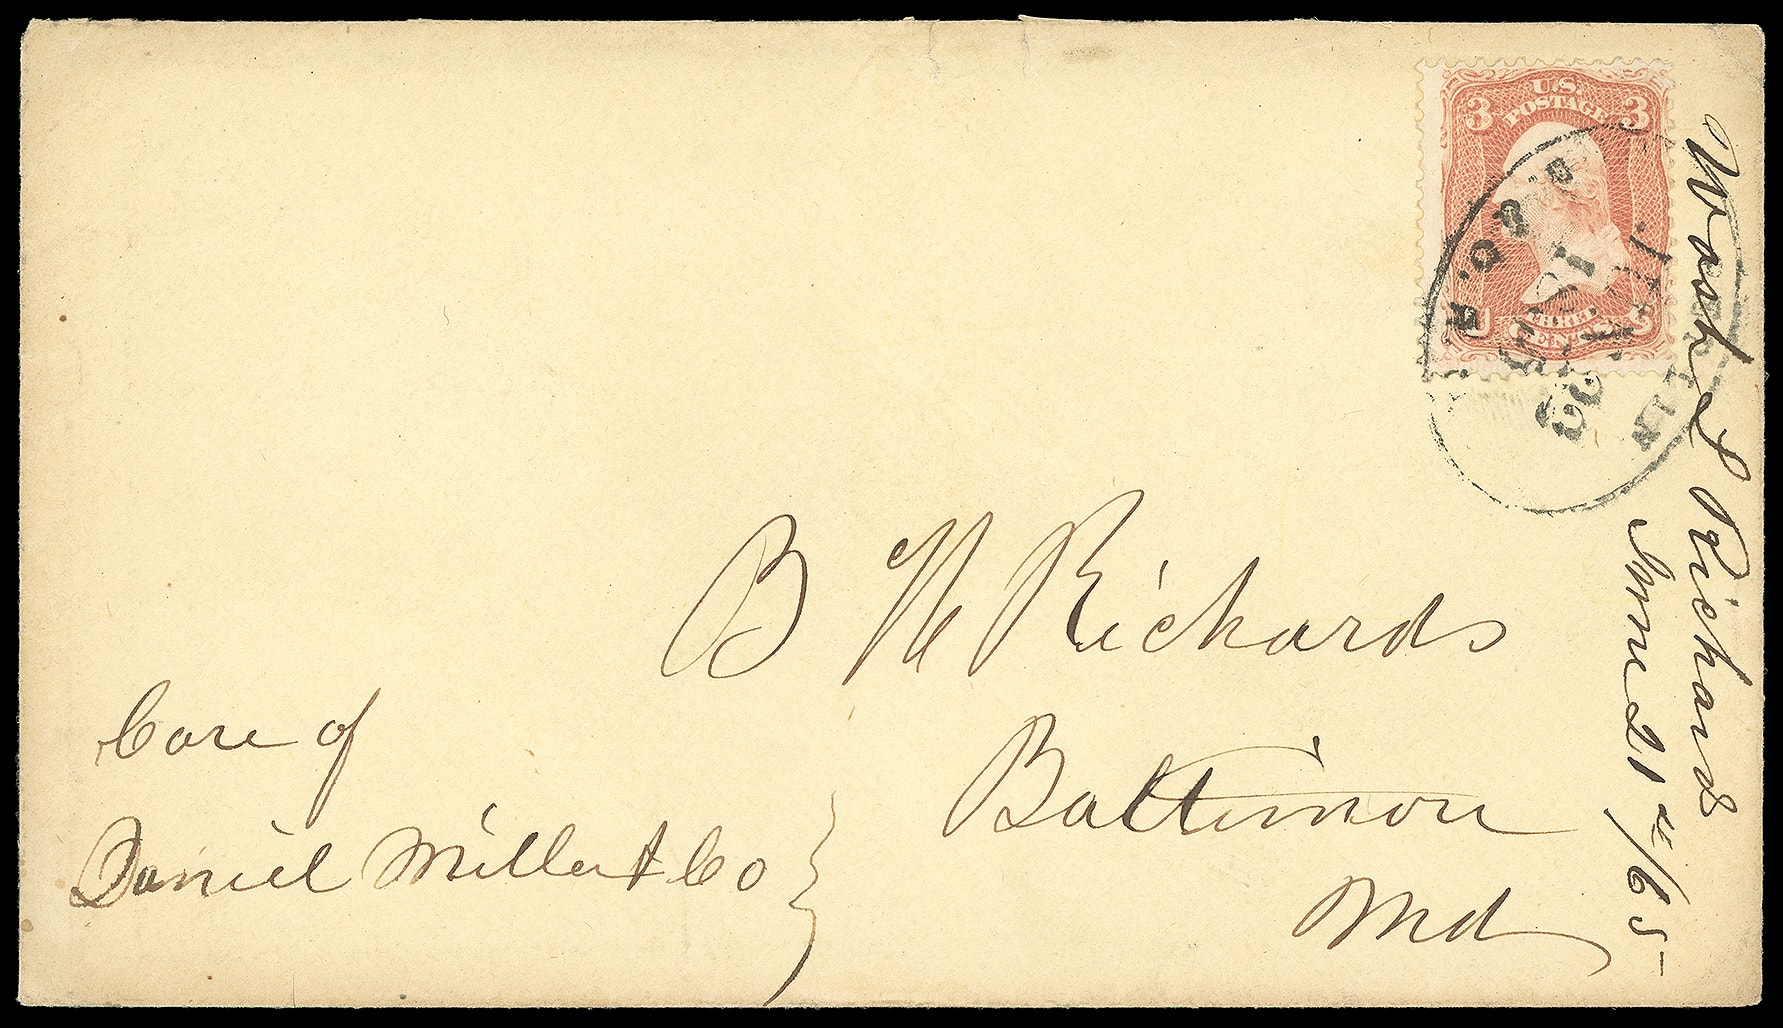 U.S.
POSTAGE
3 3
THREE
CENTS
B. & O. R.
B N Richards
Baltimore
Md
Care of
Daniel Miller & Co
Wash L Richards
June 21st/65